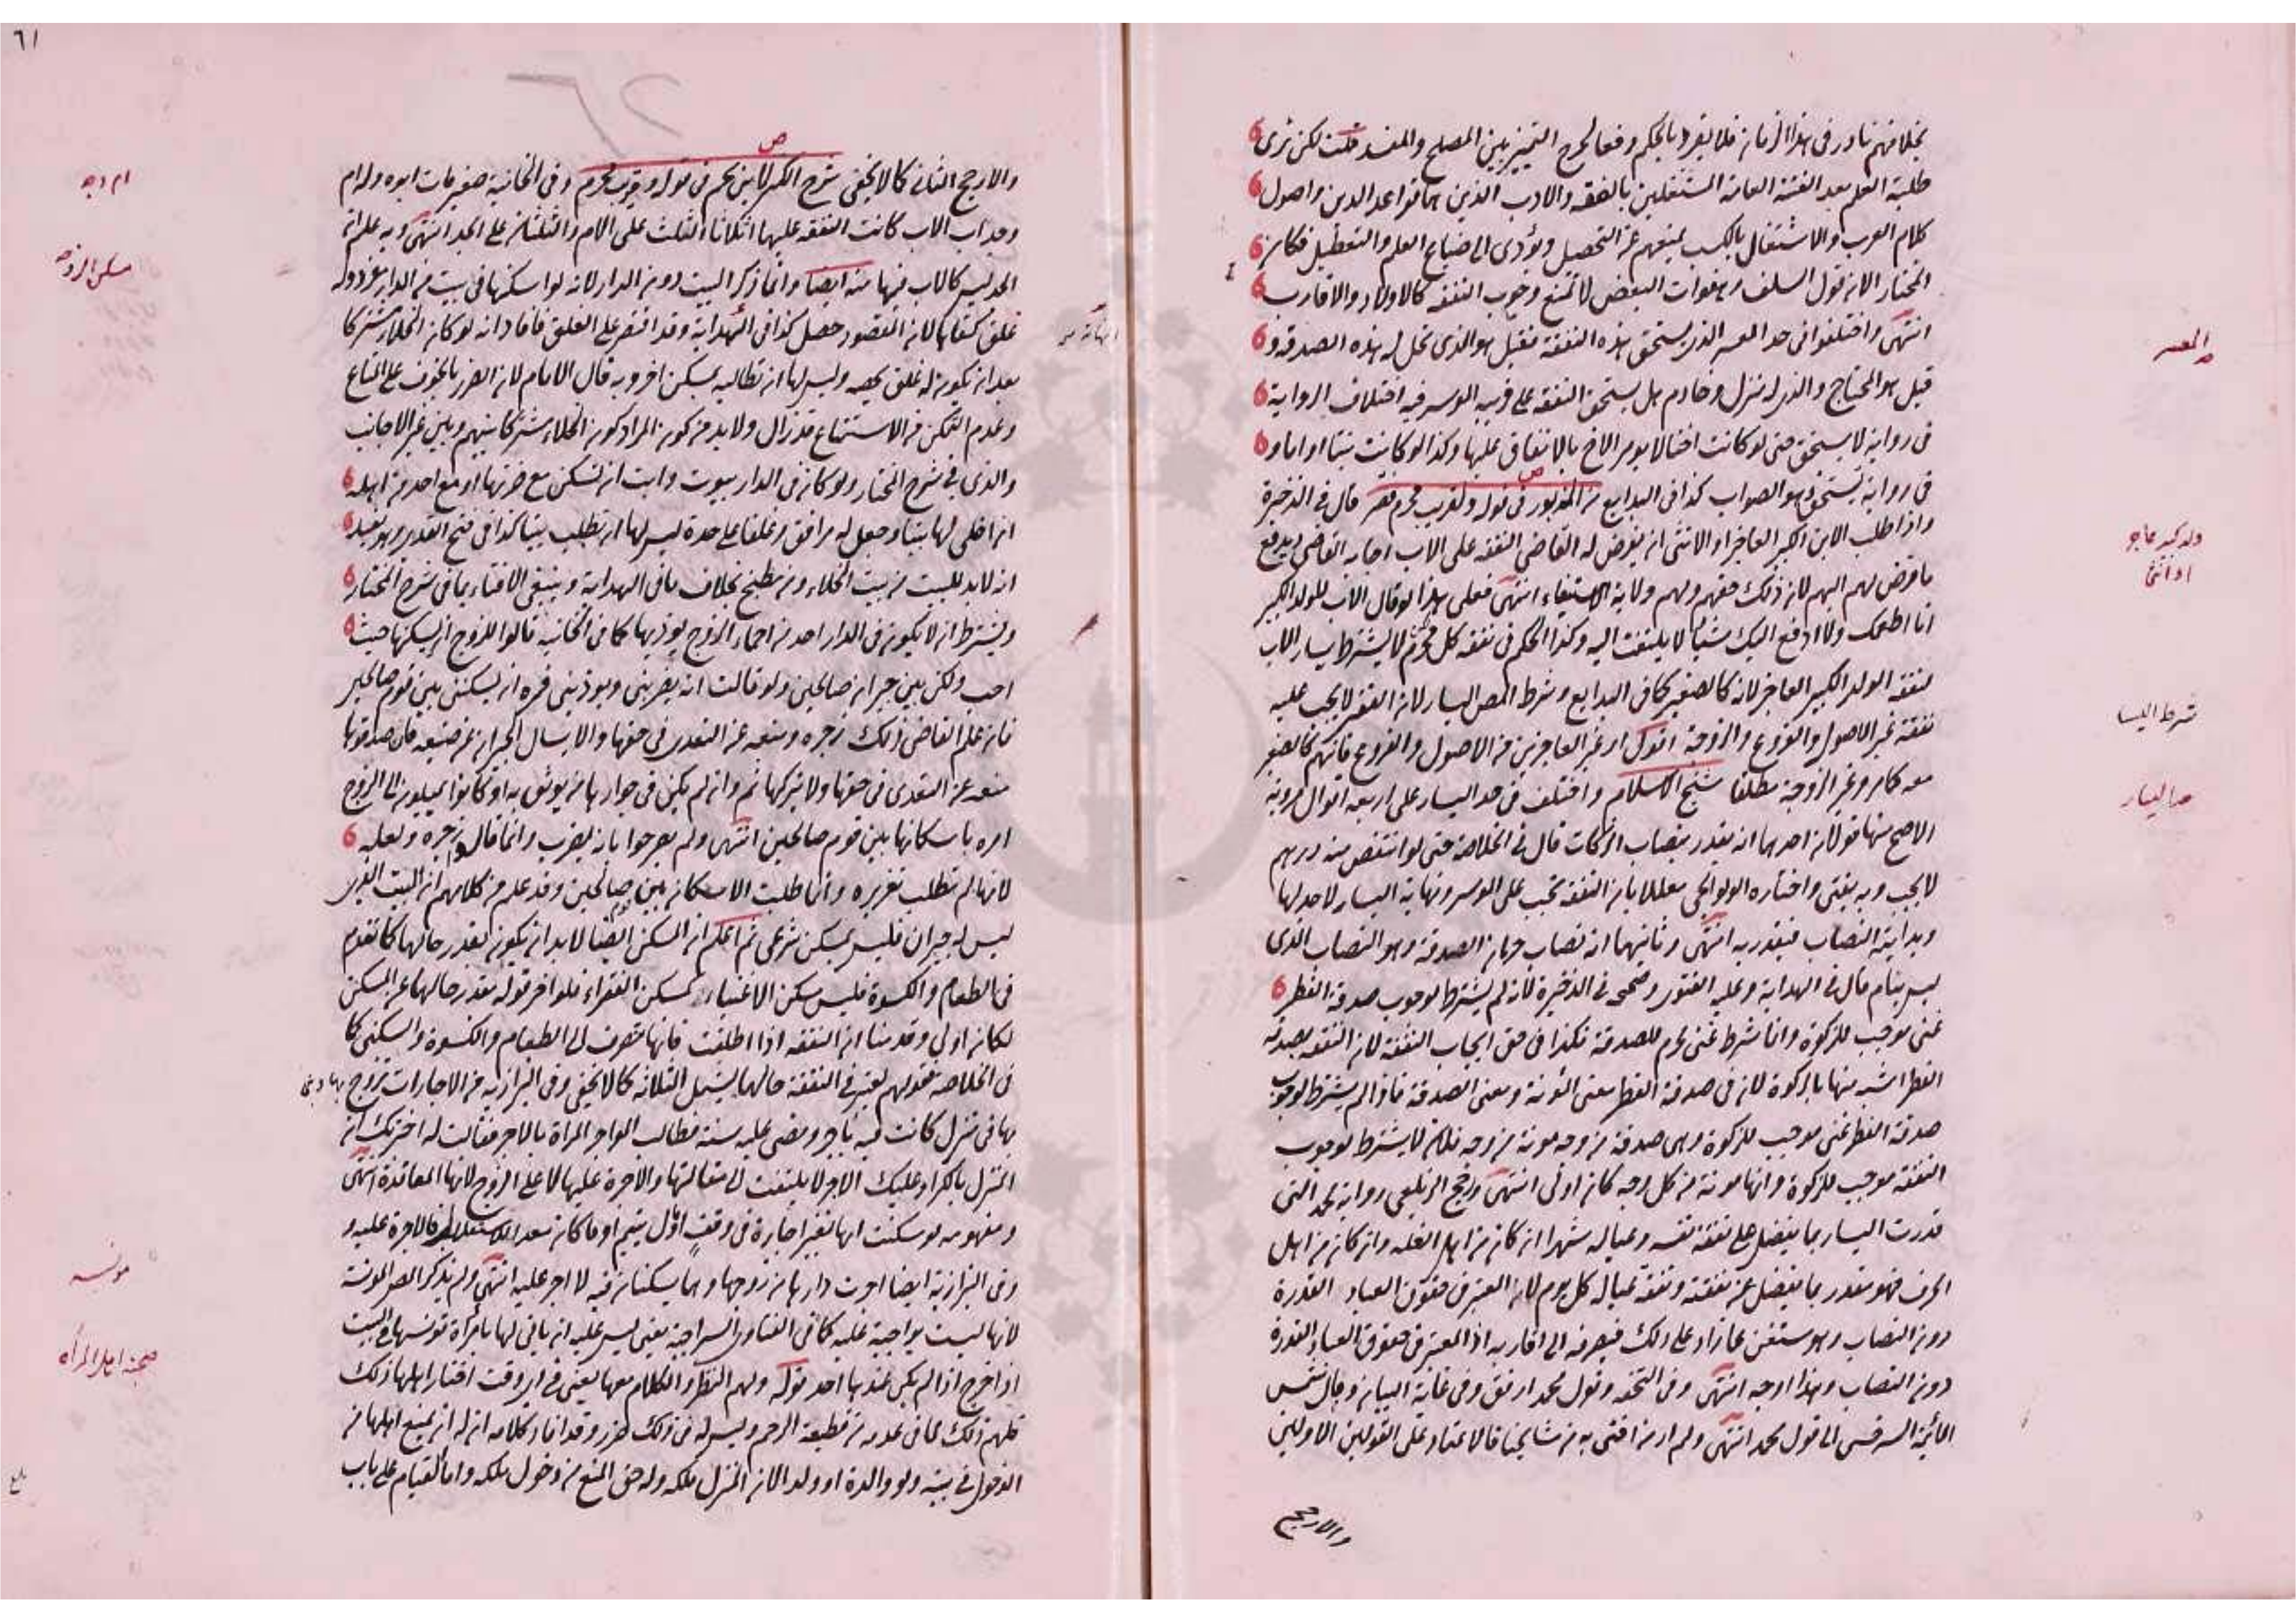 بخلافهم نادر فى هذا الزمان فلا يفرد بالحكم دفعا لحرج التمييز بين المصلح والمفسد قلت لكن نرى
طلبة العلم بعد الفتنة العامة المشتغلين بالفقه والادب الذين هما قواعد الدين واصول
كلام العرب والاشتغال بالكسب يمنعهم عن التحصيل ويؤدى الى ضياع العلم والتعطيل فكان
المختار الان قول السلف وهفوات البعض لا تمنع وجوب النفقة كالاولاد والاقارب
انتهى واختلفوا فى حد المعسر الذى يستحق هذه النفقة فقيل هو الذى تحل له هذه الصدقة و
قيل هو المحتاج والذى له منزل وخادم هل يستحق النفقة على قريبه الموسر فيه اختلاف الرواية
فى رواية لا يستحق حتى لو كانت اختا لا يؤمر الاخ بالانفاق عليها وكذا لو كانت بنتا او اما و
فى رواية تستحق وهو الصواب كذا فى البدايع من المذبور فى قوله ولقريب محرم فقير قال فى الذخيرة
واذا طلب الابن الكبير العاجز او الانثى ان يفرض له القاضى النفقة على الاب اجابه القاضى ويدفع
ما فرض لهم اليهم لان ذلك حقهم ولهم ولاية الاستيفاء انتهى فعلى هذا لو قال الاب للولد الكبير
انا اطعمك ولا ادفع اليك شيئا لا يلتفت اليه وكذا الحكم فى نفقة كل محرم لا يشترط يسار الاب
لنفقة الولد الكبير العاجز لانه كالصغير كما فى البدايع وشرط المص اليسار لان الفقير لا يجب عليه
نفقة غير الاصول والفروع والزوجة اقول اى غير العاجزين من الاصول والفروع فانهم كالصغير
معه كما مر وغير الزوجة مطلقا شيخ الاسلام واختلف فى حد اليسار على اربعة اقوال مروية
الاصح منها قولان احدهما انه يقدر بنصاب الزكات قال فى الخلاصة حتى لو انتقص منه درهم
لا يجب وبه يفتى واختاره الولوالجى معللا بان النفقة تجب على الموسر ونهاية اليسار لا حد لها
وبدايته النصاب فيقدر به انتهى وثانيهما انه نصاب حرمان الصدقة وهو النصاب الذى
ليس بنام قال فى الهداية وعليه الفتوى وصححه فى الذخيرة لانه لم يشترط لوجوب صدقة الفطر
غنى موجب للزكوة وانما شرط غنى محرم للصدقة فكذا فى حق ايجاب النفقة لان النفقة بصدقة
الفطر اشبه منها بالزكوة لان فى صدقة الفطر معنى المؤنة ومعنى الصدقة فاذا لم يشترط لوجوب
صدقة الفطر غنى موجب للزكوة وهى صدقة من وجه مونة من وجه فلان لا يشترط لوجوب
النفقة موجب للزكوة وانها مونة من كل وجه كان اولى انتهى ورجح الزيلعى رواية محمد التى
قدرت اليسار بما يفضل على نفقة نفسه وعياله شهرا ان كان من اهل الغلة وان كان من اهل
الحرف فهو مقدر بما يفضل عن نفقته ونفقة عياله كل يوم لان المعتبر فى حقوق العباد القدرة
دون النصاب وهو مستغن عما زاد على ذلك فيصرفه الى اقاربه اذ المعتبر فى حقوق العباد القدرة
دون النصاب وهذا اوجه انتهى وفى التحفة وقول محمد ارفق وفى غاية البيان ومال شمس
الائمة السرخسى الى قول محمد انتهى ولم ار من افتى به من مشايخنا فالاعتماد على القولين الاولين
والارجح
المعسر
ولد كبير عاجز
او انثى
شرط اليسا
حد اليسار
٦١
والارجح الثانى كما لا يخفى شرح الكنز لابن نجيم فى قوله ولقريب محرم وفى الخانية صغير مات ابوه وله ام
وجد اب الاب كانت النفقة عليهما اثلاثا الثلث على الام والثلثان على الجد انتهى وبه علم ان
الجد ليس كالاب فيها منه ايضا وانما ذكر البيت دون الدار لانه لو اسكنها فى بيت من الدار مفرد وله
غلق كفاها لان المقصود حصل كذا فى الهداية وقد اقتصر على الغلق فافاد انه لو كان الخلاء مشتركا
بعد ان يكون له غلق يخصه وليس لها ان تطالبه بمسكن اخر وبه قال الامام لان الضرر بالخوف على المتاع
وعدم التمكن من الاستمتاع قد زال ولا بد من كون المراد كون الخلاء مشتركا بينهم وبين غير الاجانب
والذى فى شرح المختار ولو كان فى الدار بيوت وابت ان تسكن مع ضرتها او مع احد من اهله
ان اخلى لها بيتا وجعل له مرافق وغلقا على حدة ليس لها ان تطلب بيتا كذا فى فتح القدير وهو يفيد
انه لا بد للبيت من بيت الخلاء ومن مطبخ بخلاف ما فى الهداية وينبغى الافتاء بما فى شرح المختار
ويشترط ان لا يكون فى الدار احد من احماء الزوج يوذيها كما فى الخانية قالوا للزوج ان يسكنها حيث
احب ولكن بين جيران صالحين ولو قالت انه يضربنى ويوذينى فمره ان يسكننى بين قوم صالحين
فان علم القاضى ذلك زجره ومنعه عن التعدى فى حقها والا يسال الجيران عن صنيعه فان صدقوها
منعه عن التعدى فى حقها ولا يتركها ثم وان لم يكن فى جوارها من يوثق به او كانوا يميلون الى الزوج
امره باسكانها بين قوم صالحين انتهى ولم يصرحوا بانه يضرب وانما قالوا زجره ولعله
لانها لم تطلب تعزيره وانما طلبت الاسكان بين صالحين وقد علم من كلامهم ان البيت الذى
ليس له جيران فليس بمسكن شرعى ثم اعلم ان المسكن ايضا لا بد ان يكون بقدر حالهما كما تقدم
فى الطعام والكسوة فليس مسكن الاغنياء كمسكن الفقراء فلو اخر قوله بقدر حالهما عن المسكن
لكان اولى وقدمنا ان النفقة اذا اطلقت فانها تنصرف الى الطعام والكسوة والسكنى كما
فى الخلاصة فقولهم يعتبر فى النفقة حالهما يشمل الثلاثة كما لا يخفى وفى البزازية من الاجارات تزوج بها
بها فى منزل كانت فيه باجر ومضى عليه سنة فطالب المواجر المراة بالاجر فقالت له اخبرتك ان
المنزل بالكراء وعليك الاجر لا يلتفت الى مقالتها والاجرة عليها لا على الزوج لانها العاقدة انتهى
ومفهومه لو سكنت بغير اجارة فى وقف او مال يتيم او ما كان معدا للاستغلال فالاجرة عليه و
وفى البزازية ايضا اجرت دارها من زوجها وهما يسكنان فيه لا اجر عليه انتهى ولم يذكر المص المونسة
لانها ليست بواجبة عليه كما فى الفتاوى السراجية يعنى ليس عليه ان ياتى لها بامرأة تونسها فى البيت
اذا خرج اذا لم يكن عندها احد قوله ولهم النظر والكلام معها يعنى فى اى وقت اختار اهلها ذلك
فلهم ذلك لما فى عدمه من قطيعة الرحم وليس له فى ذلك ضرر وقد افاد كلامه ان له ان يمنع اهلها من
الدخول فى بيته ولو والدة او ولدا لان المنزل ملكه وله حق المنع من دخول ملكه واما القيام على باب
ام وجد
مسكن الزوجه
مونسه
صحبة اهل المرأه
بلغ